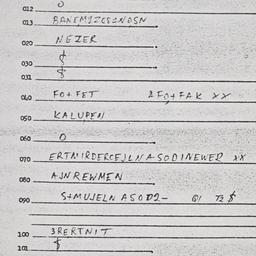 012 0
013 BANEMIZCSINOSN
020 NEZER
030 $
031 $
040 FO+FET &FO+FAK XX
050 KALUPEN
060 O
070 ERTNIRDERCEJLNASODINEWER XX
080 AJNREWMEN
090 S+MUJELNASODZ- GI TZ $
100 3RERTNIT
101 $